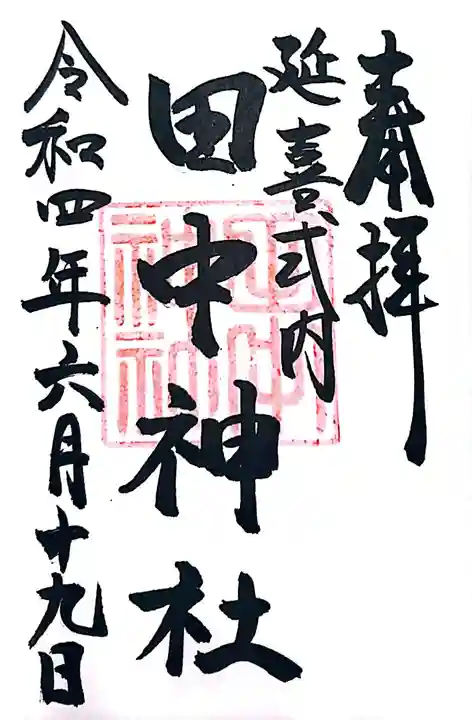 奉拝
延喜式内
田中神社
令和四年六月十九日
田中
神社